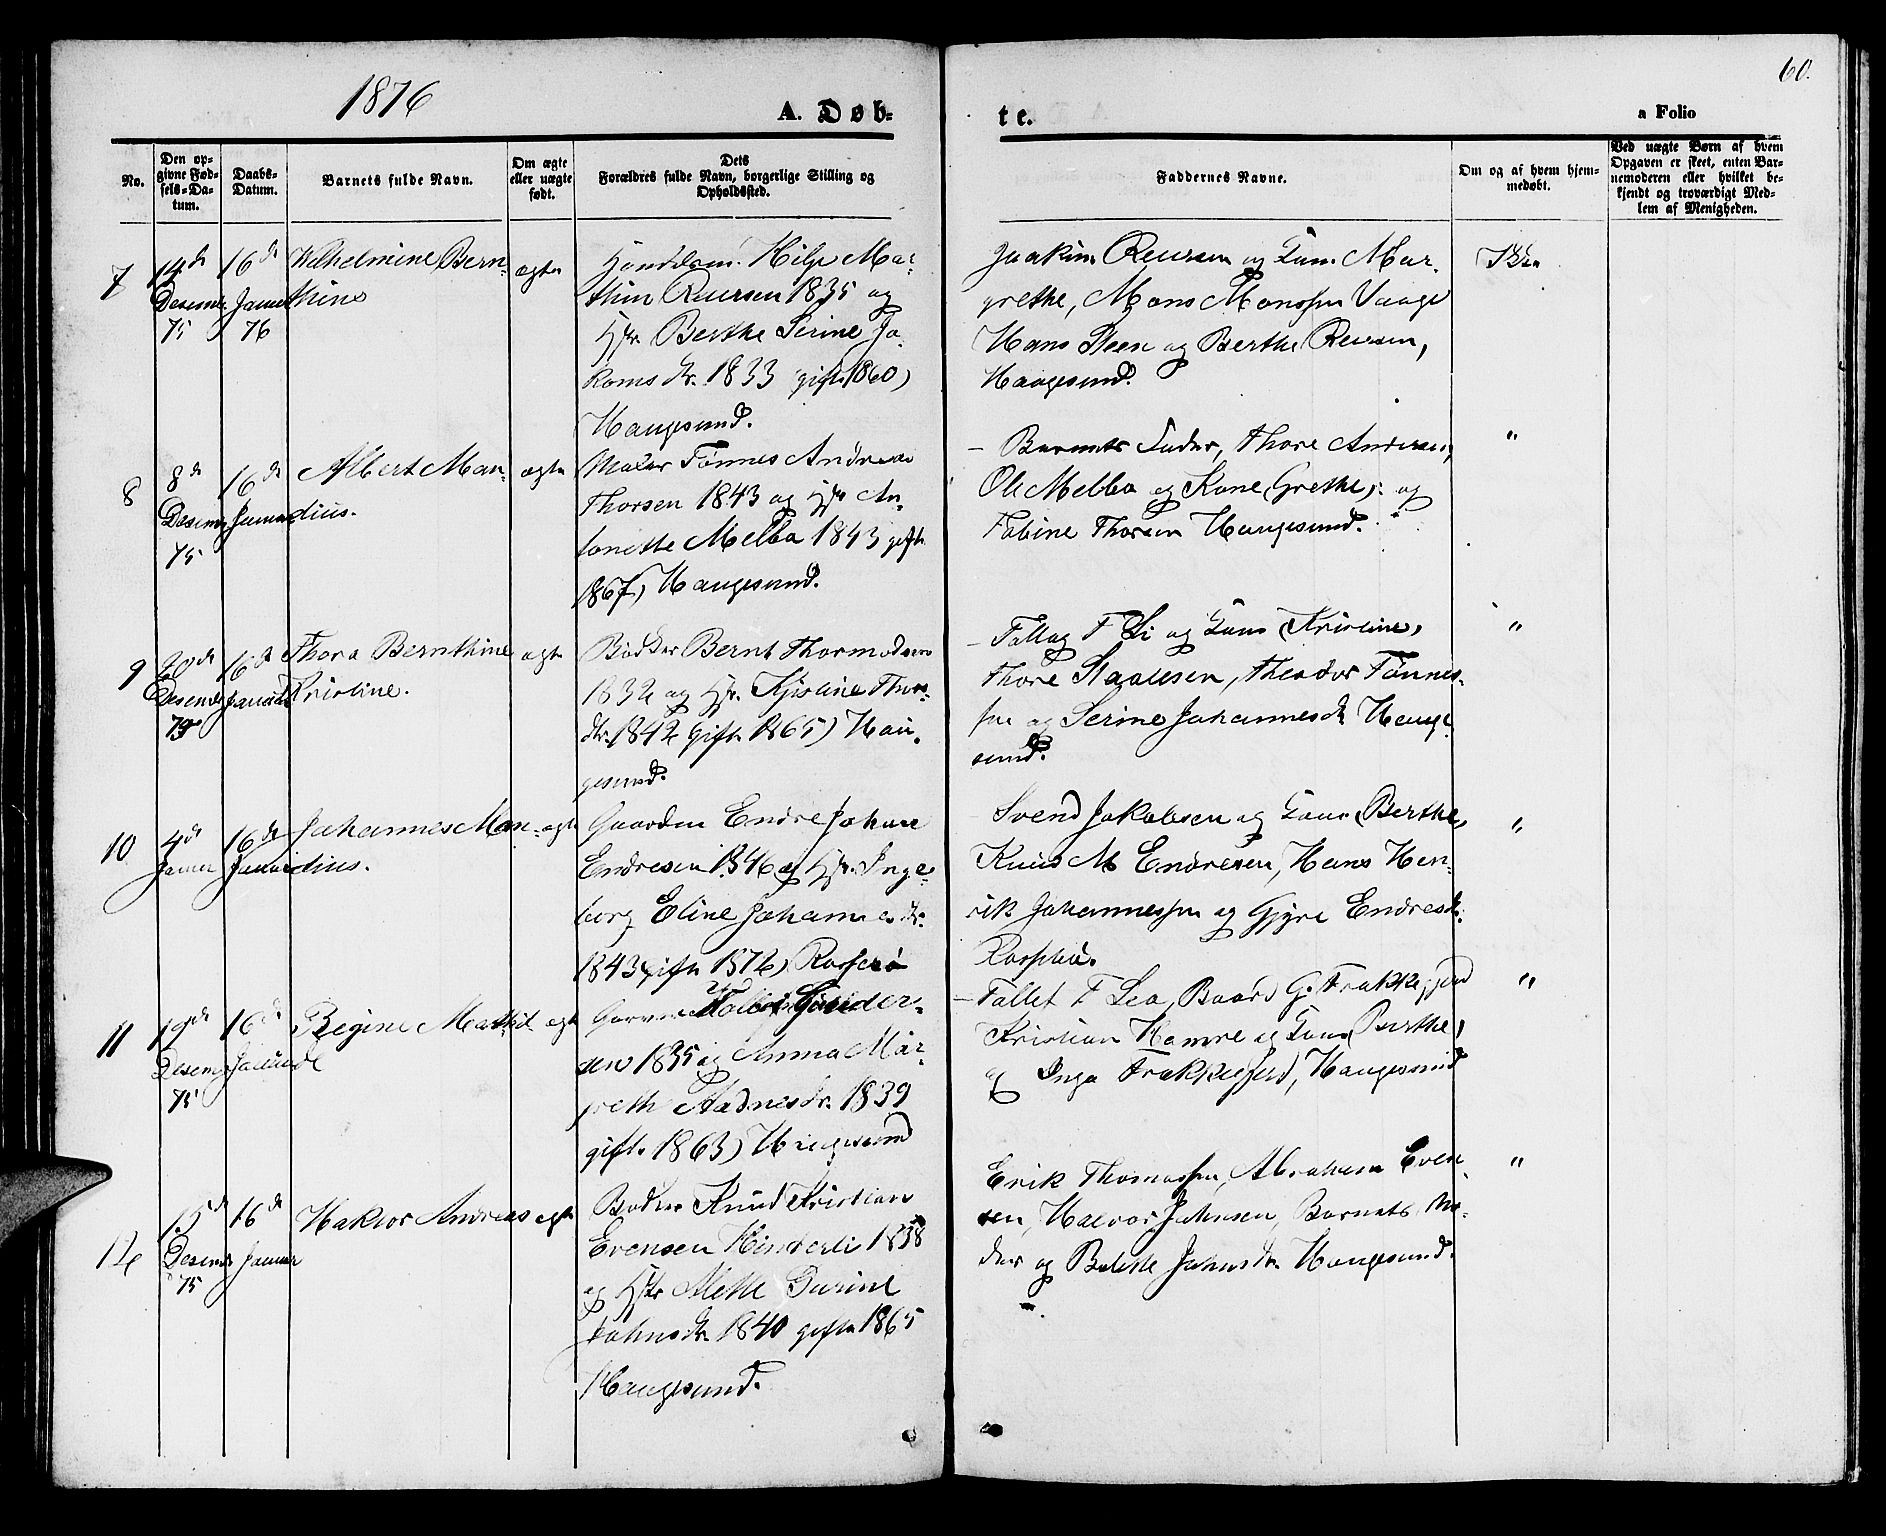 1876
A. Døb-
te.
a Folio
60.
No.
Den op-
givne Fød-
sels-Da-
tum.
Daabs-
Datum.
Barnets fulde Navn.
Om ægte
eller uægte
født.
Dets
Forældres fulde Navn, borgerlige Stilling og
Opholdssted.
Faddernes Navne.
Om og af hvem hjem-
medøbt.
Ved uægte Børn af hvem
Opgaven er skeet, enten Bar-
nemoderen eller hvilket be-
kjendt og troværdigt Med-
lem af Menigheden.
7
14de
Desembr
75
16de
Januar
76
Wilhelmine Bern-
thine
ægte
Mar-
thin Reiersen 1835 og
Hstr. Berthe Serine Ja-
koms dr. 1833 gifte 1860)
Haugesund.
Joakim Reiersen og Mar-
grethe, Mons Monssen Vaage
Hans Steen og Berthe Reiersen,
Haugesund.
8
8de
Desembr
75
16de
Januar
Albert Man-
dius.
ægte
Maler Tønnes Andreas
Thorsen 1843 og Hstr An-
tonette Melbo 1843 gifte
1867) Haugesund.
- Barnets Fader, Thore Andersen,
Ole Melbo og Kone (Grethe), og
Tobine Thorsen Haugesund.
"
9
20de
Desembr
75
16de
Januar
Thora Bernthine
Kristine.
ægte
Bødker Bernt Thormodsen
1832 og Hstr. Kjistine Thors-
dr. 1842 gifte 1865) Hau-
gesund.
- Tollag T Li og (Kristine),
Thore Staalesen, Theodor Tønnes-
sen og Serine Johannesdr Hauge-
sund.
"
10
4de
Januar
16de
Januar
Johannes Man-
dius.
ægte
Gaardm Endre Johan
Endresen 1846 og Hstr. Inge-
borg Eline Johannesdr.
1843 gifte 1872)
Svend Jakobsen og (Berthe),
Knud M Endresen, Hans Hen-
rik Johannessen og Gjyre Endresdr.
"
11
19de
Desembr
75
16de
Januar
Regine Mathil-
de
ægte
Garver Gunder-
sen 1835 og Anna Mar-
greth Aadnesdr. 1839
gifte 1863) Haugesund
- Tollef T Lea, Baard G. Frakkagjerd
Kristian Hamre og (Berthe),
og Inga Frakkagjerd, Haugesund
"
12
15de
Desembr
75
16de
Januar
Haktor Andreas
ægte
Bødker Knud Kristian
Evensen Kinderli 1838
og Hstr Mette Gurine
Johnsdr. 1840 gifte 1865
Haugesund.
Erik Thomassen, Abraham Even-
sen, Halvor Johnsen, Barnets Mo-
der og Johnsdr. Haugesund.
"